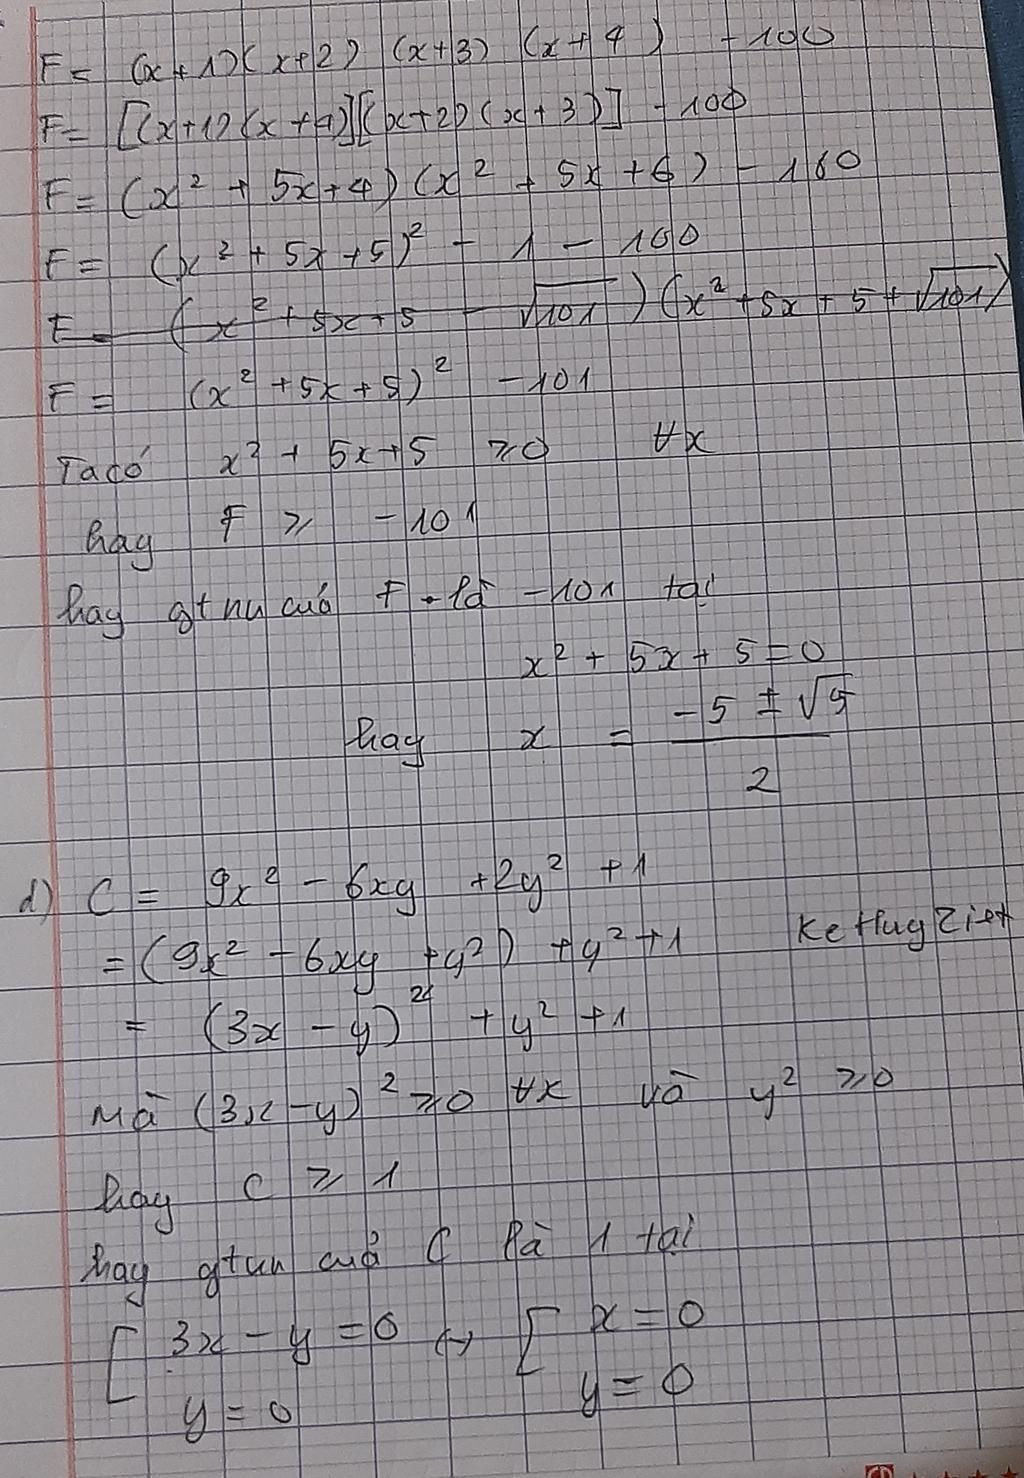 F = (x+1)(x+2) (x+3) (x+4) - 100
F = [(x+1)(x+4)][(x+2)(x+3)] - 100
F = (x² + 5x+4)(x² + 5x+6) - 100
F = (x² + 5x+5)² - 1 - 100
F = (x² + 5x+5 - √101)(x² + 5x + 5 + √101)
F = (x² + 5x+5)² - 101
Ta có x² + 5x+5 ≥ 0 ∀x
hay F ≥ -101
hay gtnn của F là -101 tại
x² + 5x + 5 = 0
hay x = (-5 ± √5)/2
d) C = 9x² - 6xy + 2y² + 1
= (9x² - 6xy + y²) + y² + 1
= (3x - y)² + y² + 1
Mà (3x - y)² ≥ 0 ∀x và y² ≥ 0
hay C ≥ 1
hay gtnn của C là 1 tại
[ 3x - y = 0 ↔ [ x = 0
y = 0 y = 0